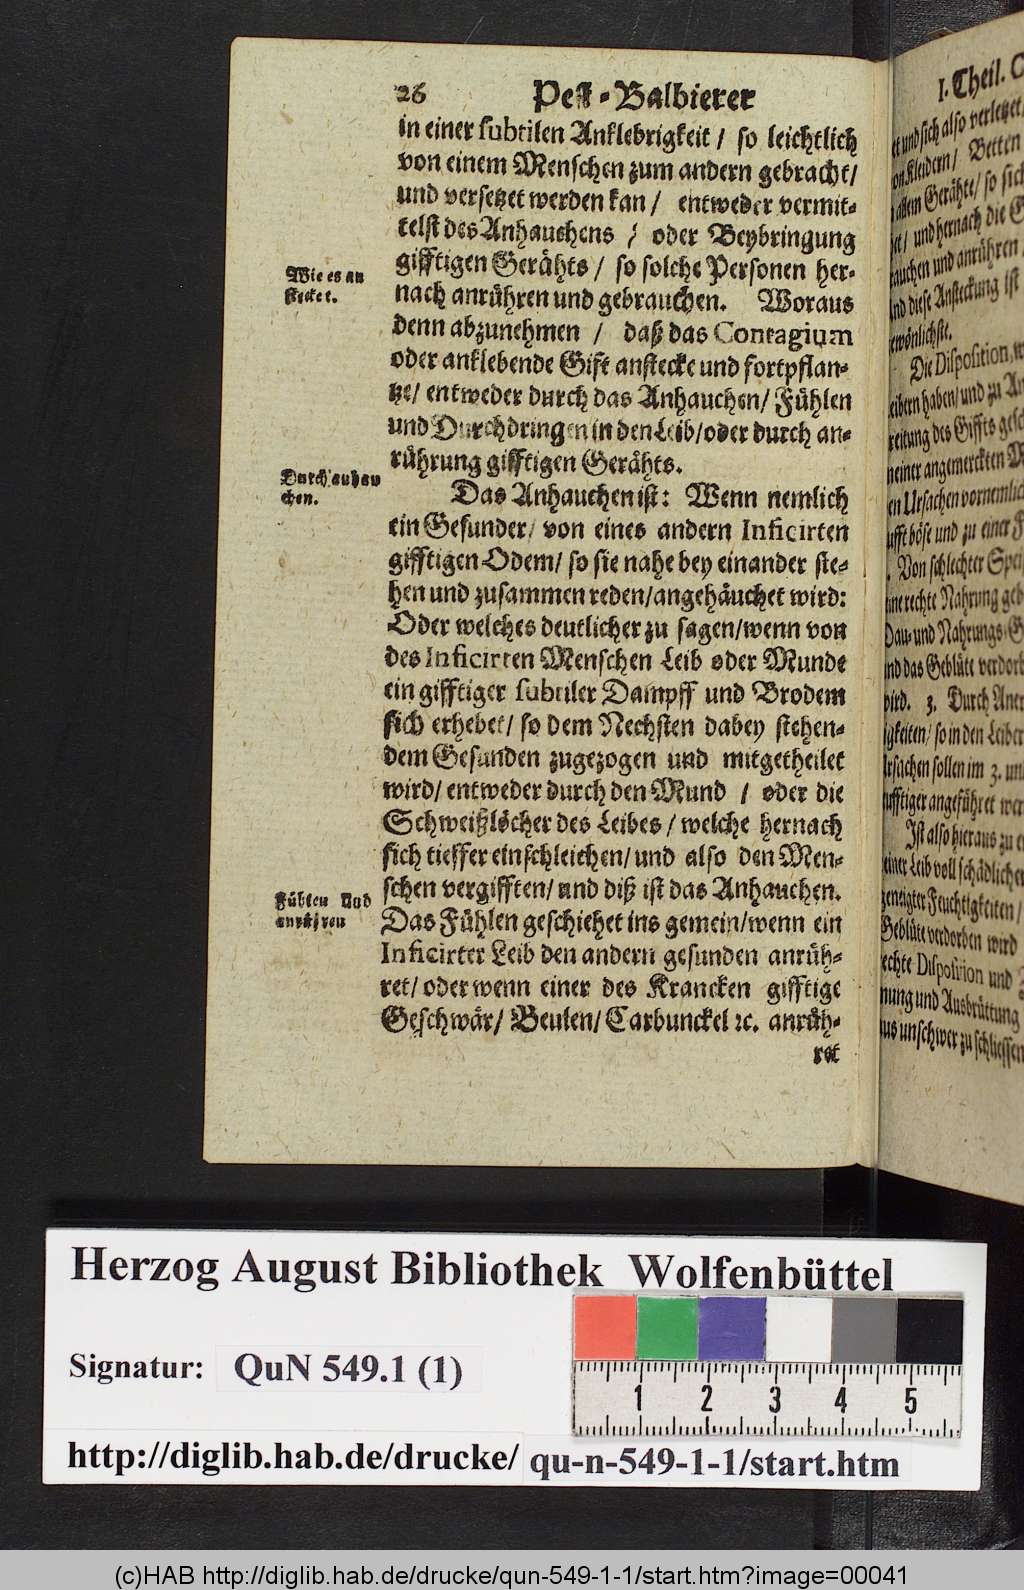 26 Pest-Balbierer
in einer subtilen Anklebrigkeit / so leichtlich
von einem Menschen zum andern gebracht /
und versetzet werden kan / entweder vermit-
telst des Anhauchens / oder Beybringung
gifftigen Gerähts / so solche Personen her-
Wie es an
stecket.
nach anrühren und gebrauchen. Woraus
denn abzunehmen / daß das Contagium
oder anklebende Gift anstecke und fortpflan-
tze / entweder durch das Anhauchen / Fühlen
und Durchdringen in den Leib / oder durch an-
rührung gifftigen Gerähts.
Durch anhau
chen.
Das Anhauchen ist: Wenn nemlich
ein Gesunder / von eines andern Inficirten
gifftigen Odem / so sie nahe bey einander ste-
hen und zusammen reden / angehäuchet wird:
Oder welches deutlicher zu sagen / wenn von
des Inficirten Menschen Leib oder Munde
ein gifftiger subtiler Dampff und Brodem
sich erhebet / so dem Nechsten dabey stehen-
dem Gesunden zugezogen und mitgetheilet
wird / entweder durch den Mund / oder die
Schweißlöcher des Leibes / welche hernach
sich tieffer einschleichen / und also den Men-
schen vergifften / und diß ist das Anhauchen.
Fühlen und
anrühren
Das Fühlen geschiehet ins gemein / wenn ein
Inficirter Leib den andern gesunden anrüh-
ret / oder wenn einer des Krancken gifftige
Geschwär / Beulen / Carbunckel ꝛc. anrüh-
ret
I. Theil.
und sich also verletzet
Kleidern / Betten
allem Gerähte / so sich
und hernach die
und anrühren
diese Ansteckung ist
Die Disposition,
haben / und zu
des Giffts
einer angemerckten
Ursachen vornemlich
böse und zu einer
Von schlechter
rechte Nahrung
und Nahrungs-
und das Geblüte
3. Durch
so in den Leibern
sollen im 3. und
angeführet
Ist also hieraus zu
Leib voll schädlicher
Feuchtigkeiten /
Geblüte verdorben wird
Disposition und
und Ausbrüttung
unschwer zu schliessen
Herzog August Bibliothek Wolfenbüttel
Signatur: QuN 549.1 (1)
1 2 3 4 5
http://diglib.hab.de/drucke/ qu-n-549-1-1/start.htm
(c)HAB http://diglib.hab.de/drucke/qun-549-1-1/start.htm?image=00041